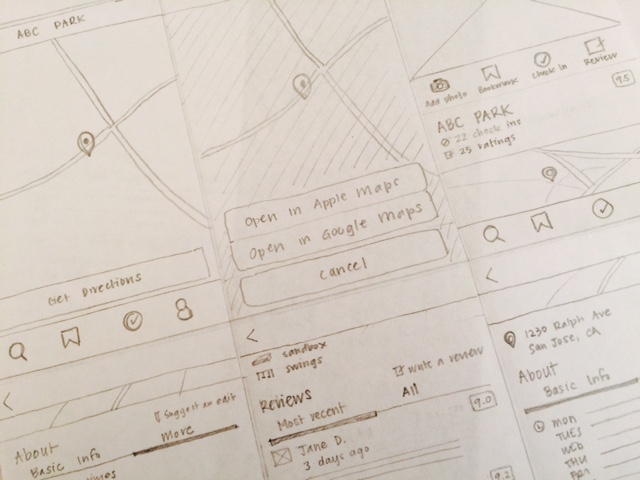 ABC PARK
Get Directions
Suggest an edit
About
Basic Info
More
Open in Apple Maps
Open in Google Maps
Cancel
sandbox
swings
Reviews
Write a review
Most recent
All
9.0
Jane D.
3 days ago
9.2
Add photo
Bookmark
Check in
Review
9.5
ABC PARK
22 check ins
25 ratings
1230 Ralph Ave
San Jose, CA
About
Basic Info
MON
TUES
WED
THU
FRI